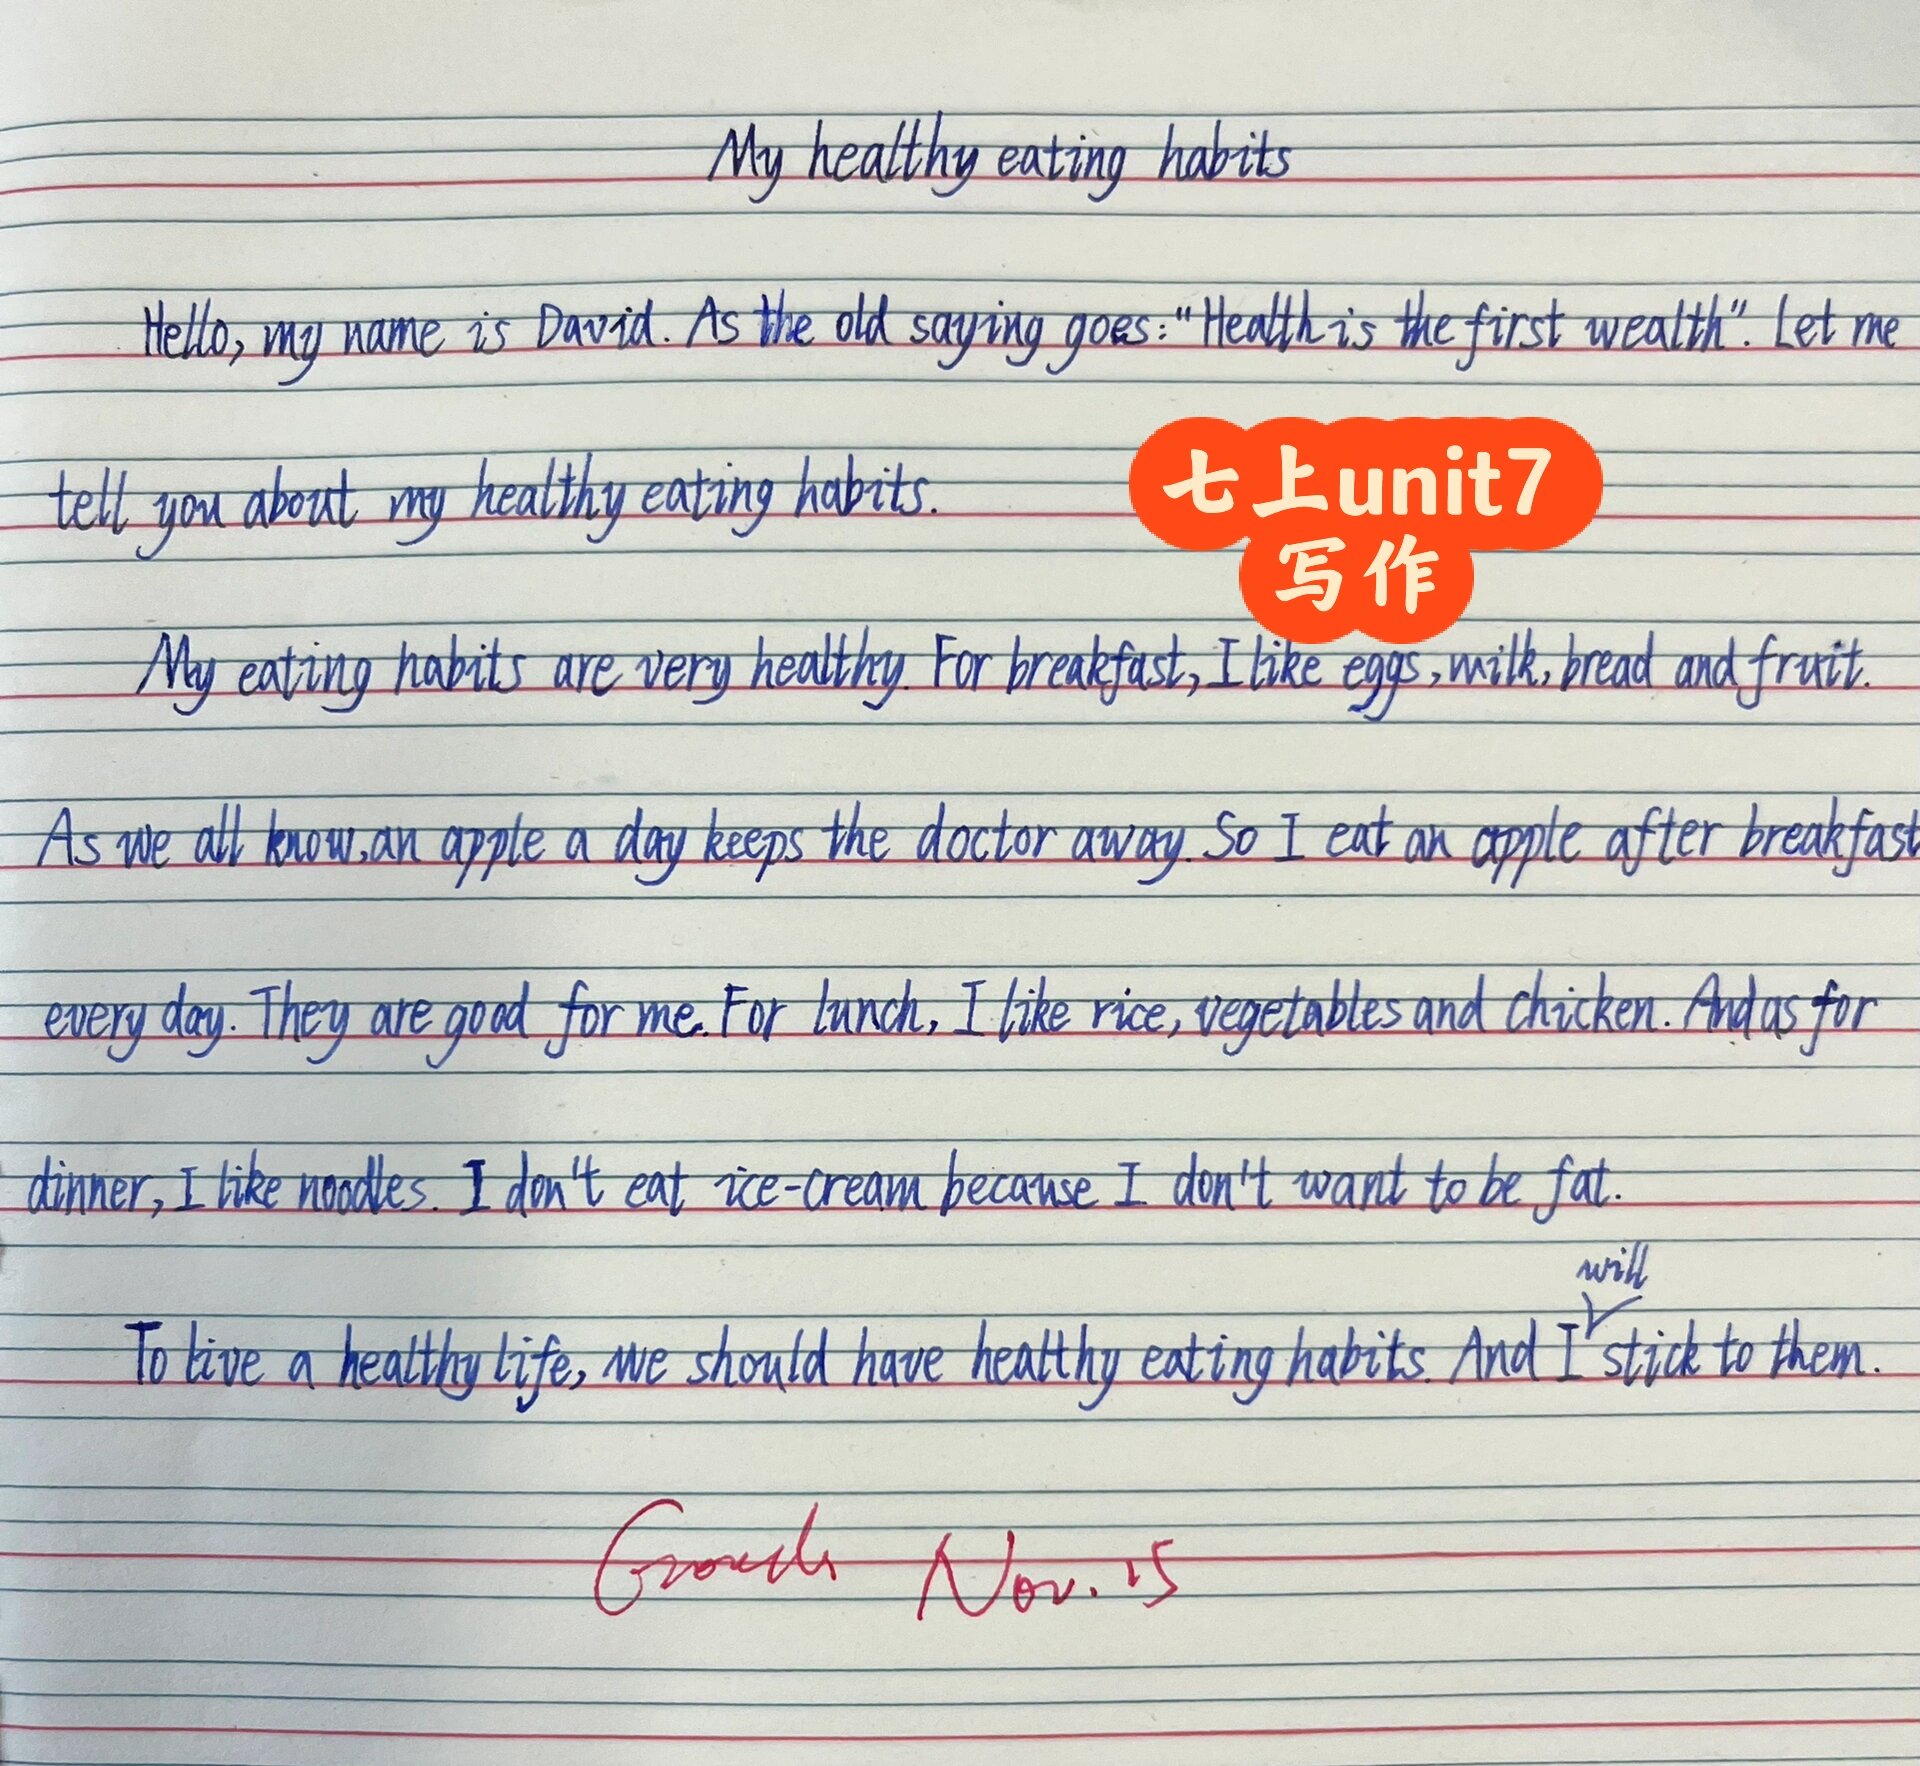 My healthy eating habits
Hello, my name is David. As the old saying goes: "Health is the first wealth". Let me
tell you about my healthy eating habits.
七上unit7
写作
My eating habits are very healthy. For breakfast, I like eggs, milk, bread and fruit.
As we all know, an apple a day keeps the doctor away. So I eat an apple after breakfast
every day. They are good for me. For lunch, I like rice, vegetables and chicken. And as for
dinner, I like noodles. I don't eat ice-cream because I don't want to be fat.
will
To live a healthy life, we should have healthy eating habits. And I stick to them.
Nov. 15